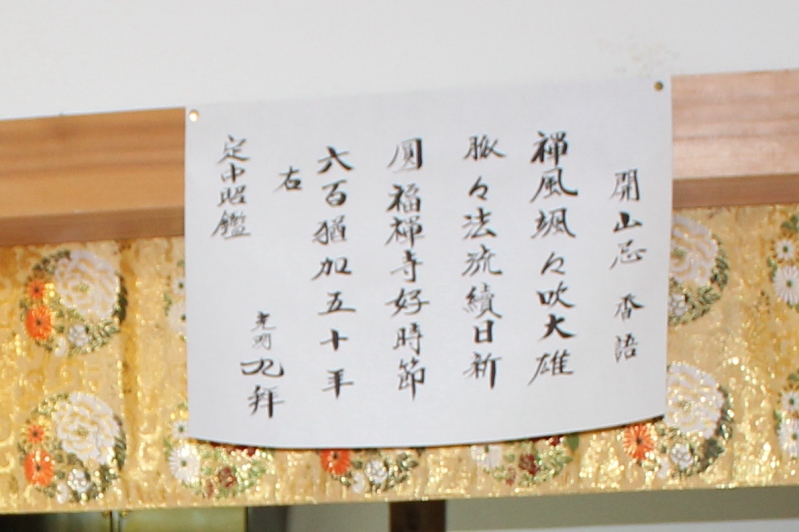 開山忌 香語
禅風颯々吹大雄
脈々法流績日新
圓福禅寺好時節
六百猶加五十年
右
定中昭鑑
光明 九拜